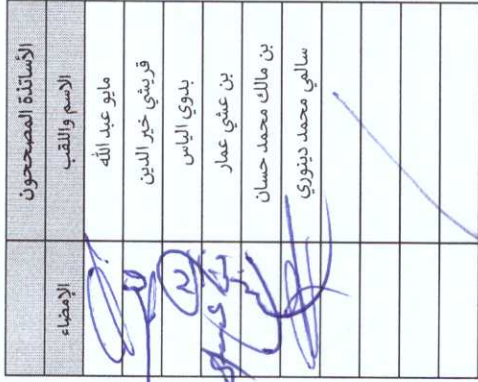 الأساتذة المصححون
الاسم واللقب الإمضاء
مايو عبد الله
قريشي خير الدين
بدوي الياس
بن عشي عمار
بن مالك محمد حسان
سالمي محمد دينوري